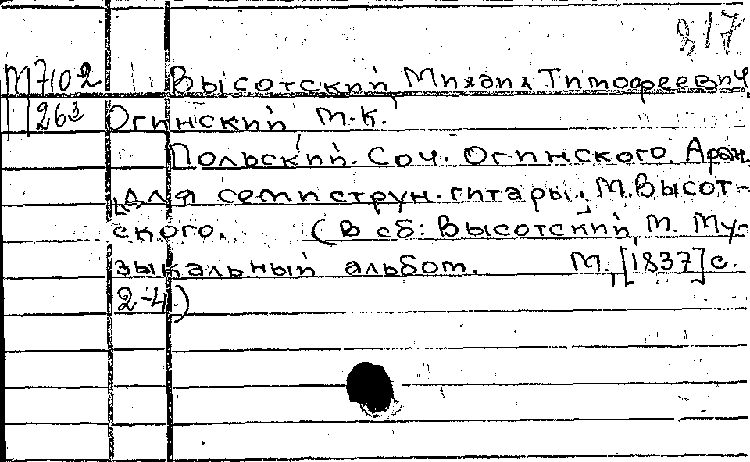 317
М7102 Высотский Михаил Тимофеевич
263 Огинский М.К.
Польский. Соч. Огинского. Аран.
для семиструн. гитары М. Высот-
ского. (В сб: Высотский, М. Му-
зыкальный альбом. М., [1837] с.
2-4)